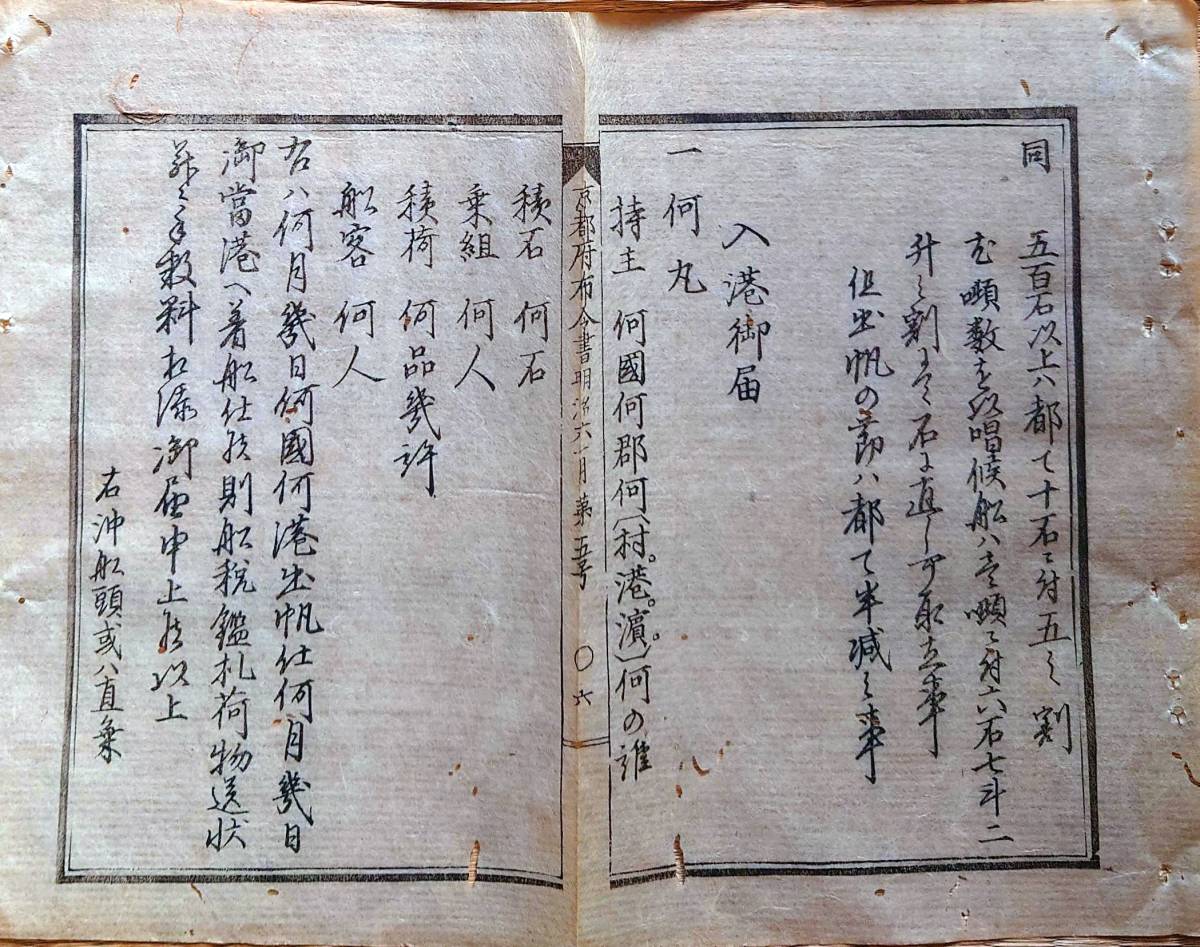 同　五百石以上ハ都て十石ニ付五之割
尤噸数を以唱候船ハ壱噸ニ付六石七斗二
升之割にて石に直し可取立事
但出帆の節ハ都て半減之事
入港御届
一　何丸
持主　何國何郡何(村。港。濱。)何の誰
京都府布令書明治六一月第五号　〇六
積石　何石
乗組　何人
積荷　何品幾許
船客　何人
右ハ何月幾日何國何港出帆仕何月幾日
御當港ヘ着船仕候則船税鑑札荷物送状
并ニ手数料相添御届申上候以上
右沖船頭或ハ直乗